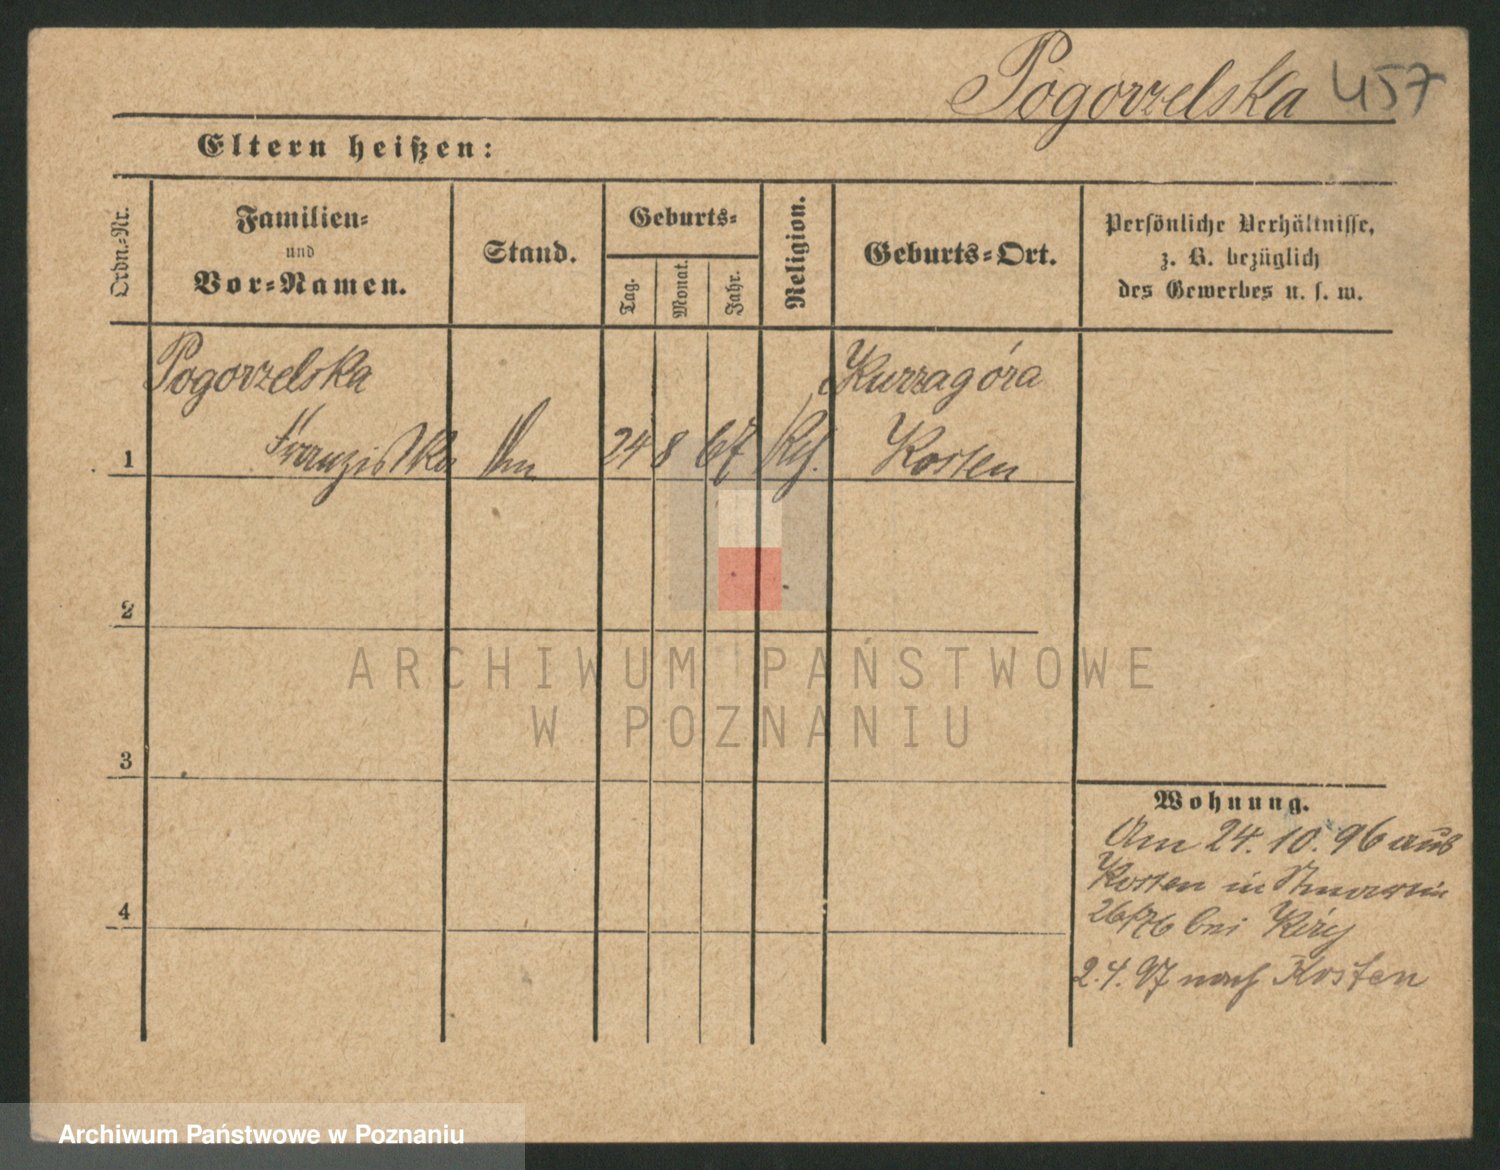 Pogorzelska 457
Eltern heißen:
Ordn.-Nr.
Familien-
und
Vor-Namen.
Stand.
Geburts-
Tag.
Monat.
Jahr.
Religion.
Geburts-Ort.
Persönliche Verhältnisse,
z. B. bezüglich
des Gewerbes u. s. w.
Pogorzelska
Kurzagóra
1
Franziska
24
8
67
Kosten
2
3
4
ARCHIWUM PAŃSTWOWE
W POZNANIU
Wohnung.
Am 24. 10. 96 aus
Kosten in
bei
2. 4. 97 nach Kosten
Archiwum Państwowe w Poznaniu